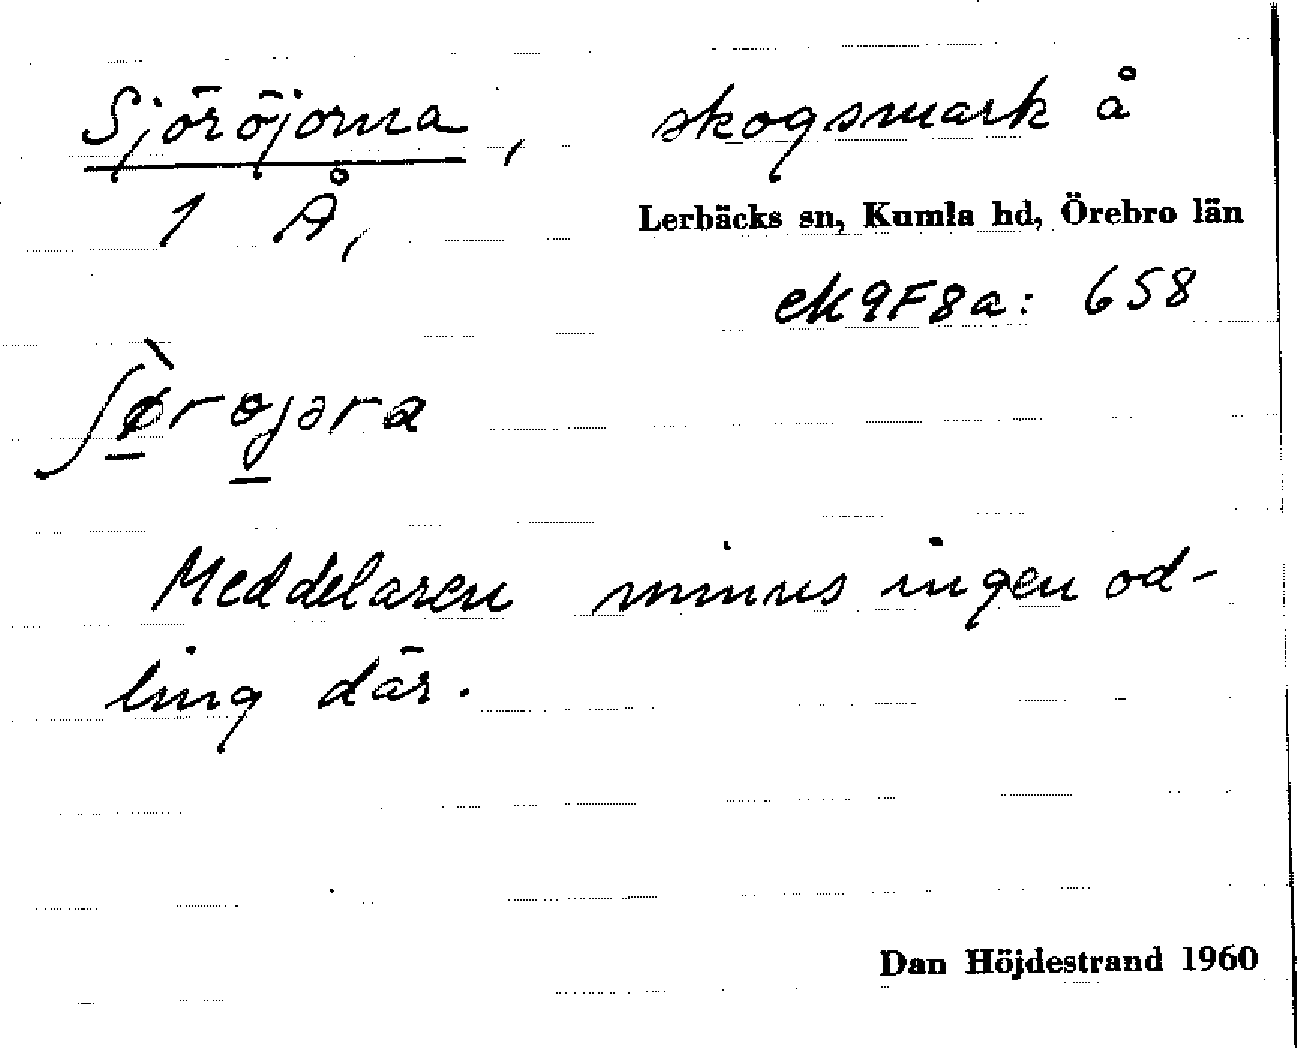 Sjöröjorna, skogsmark å
1 Å, Lerbäcks sn, Kumla hd, Örebro län
ek9F8a: 658
ʃø̀røjəra
Meddelaren minns ingen od-
ling där.
Dan Höjdestrand 1960